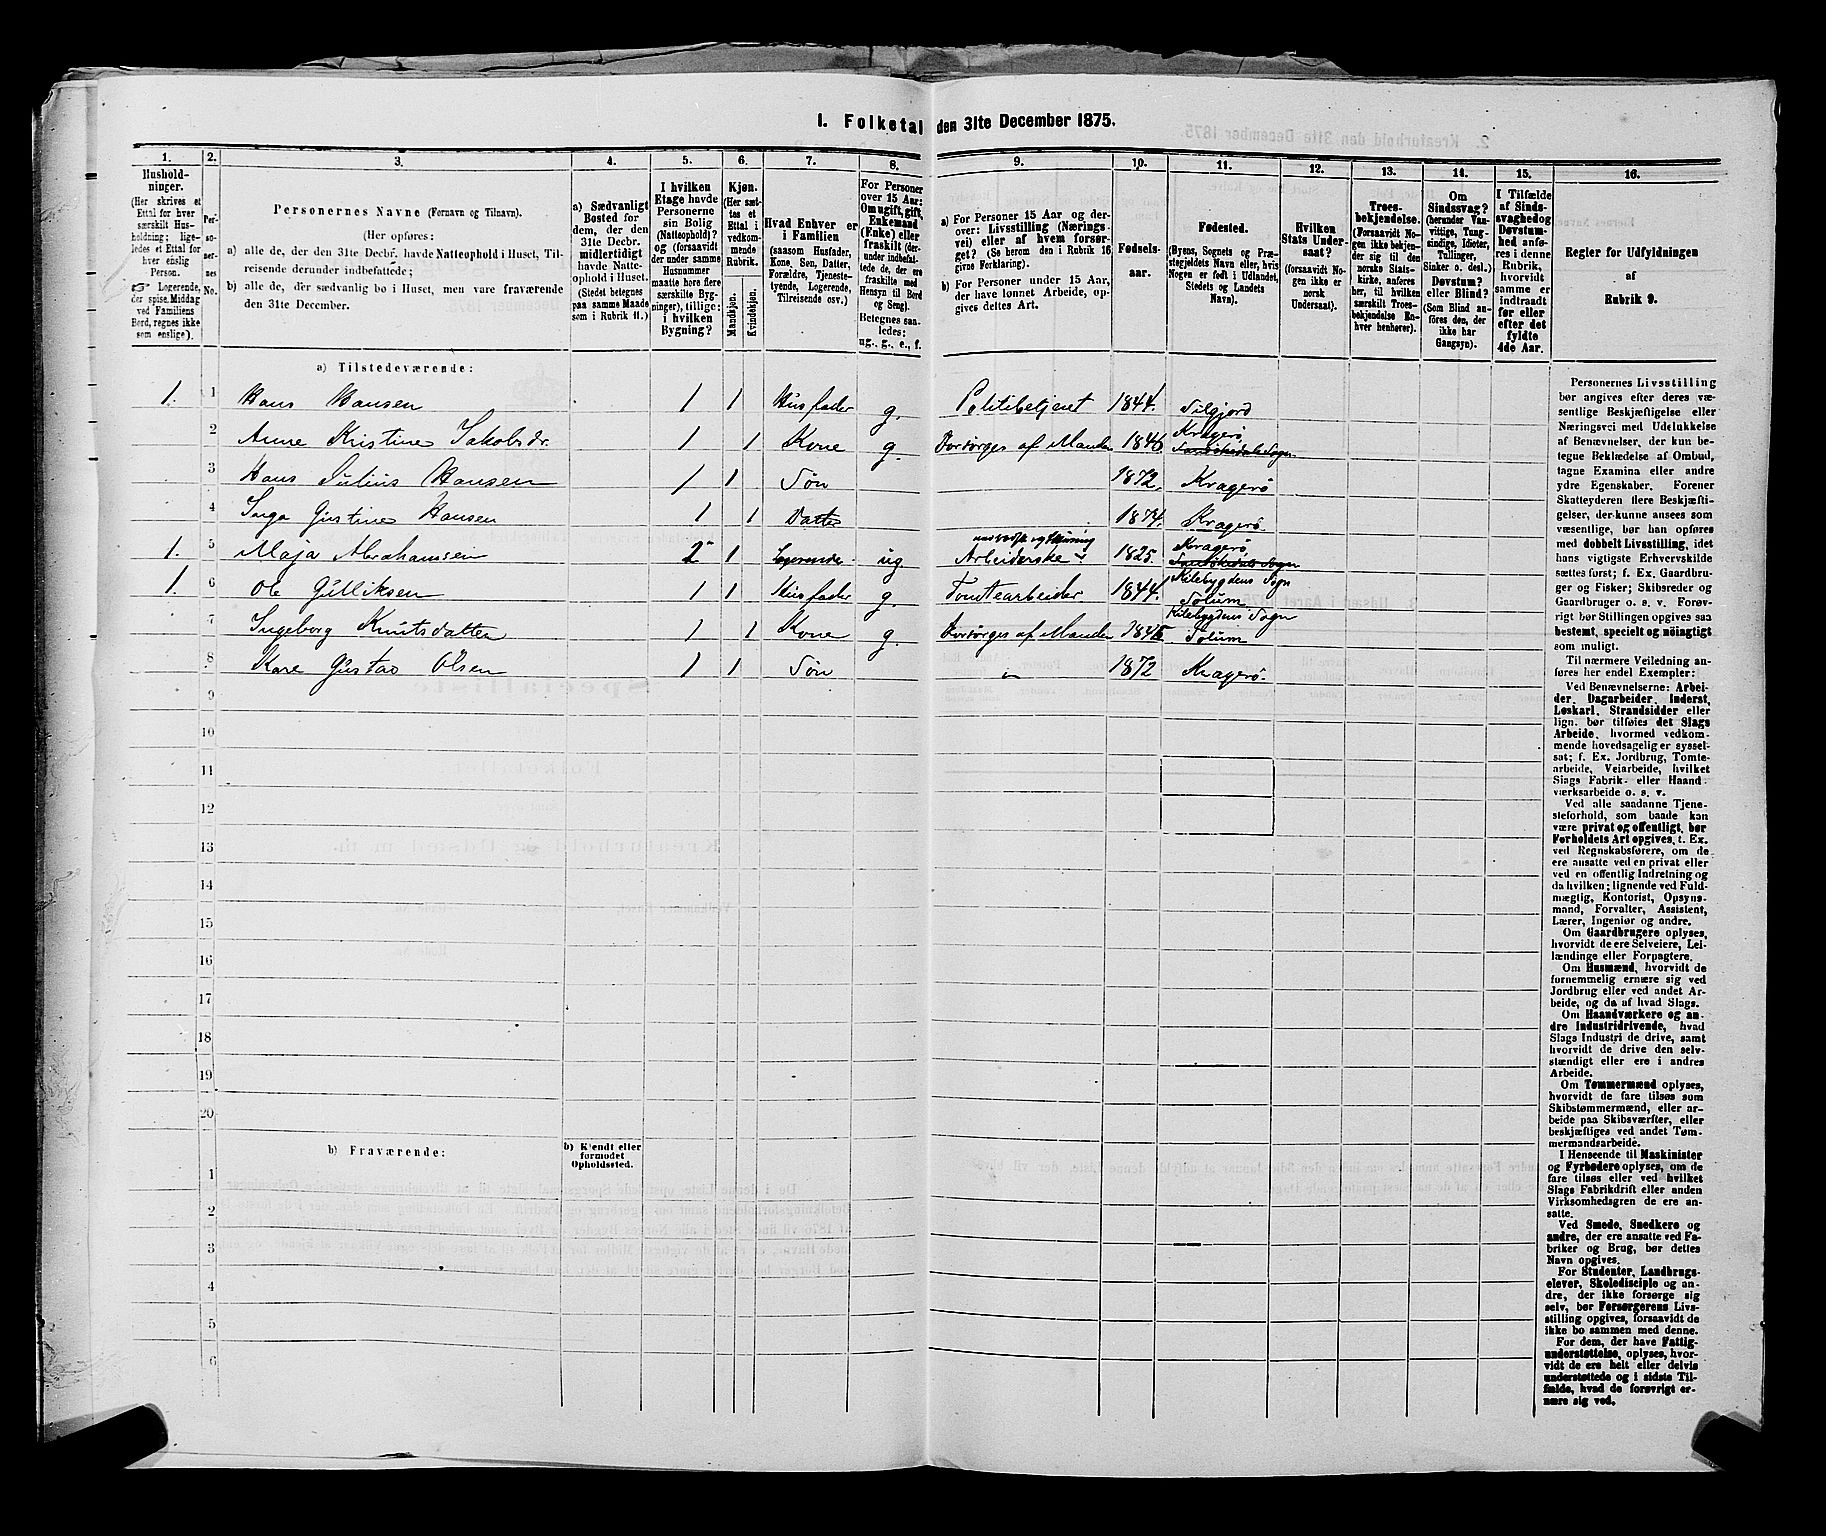 1. Folketal den 31te December 1875.
1. 2. 3. 4. 5. 6. 7. 8. 9. 10. 11. 12. 13. 14. 15. 16.
Husholdninger.
(Her skrives et
Ettal for hver
særskilt Husholdning;
ligeledes et Ettal for
hver enslig
Person.
☞ Logerende,
der spise Middag
ved Familiens
Bord, regnes ikke
som enslige).
Personernes No.
Personernes Navne (Fornavn og Tilnavn).
(Her opføres:
a) alle de, der den 31te Decbr. havde Natteophold i Huset, Tilreisende derunder indbefattede;
b) alle de, der sædvanlig bo i Huset, men vare fraværende
den 31te December.
a) Sædvanligt
Bosted for
dem, der den
31te Decbr.
midlertidigt
havde Natteophold i Huset.
(Stedet betegnes
paa samme Maade
som i Rubrik 11.)
I hvilken
Etage havde
Personerne
sin Bolig
(Natteophold)?
og (forsaavidt
der under samme
Husnummer
maatte høre flere
særskilte Bygninger), tillige:
i hvilken
Bygning?
Kjøn.
(Her sættes et
Ettal i
vedkommende
Rubrik.
Mandkjøn.
Kvindekjøn.
Hvad Enhver er
i Familien
(saasom Husfader,
Kone, Søn, Datter,
Forældre, Tjenestetyende, Logerende,
Tilreisende osv.)
For Personer
over 15 Aar:
Om ugift, gift,
Enkemand
(Enke) eller
fraskilt (derunder indbefattede de, der ere
fraskilte med
Hensyn til Bord
og Seng).
Betegnes saaledes:
ug., g., e., f.
a) For Personer 15 Aar og derover: Livsstilling (Næringsvei) eller af hvem forsørget? (Se herom den i Rubrik 16
givne Forklaring).
b) For Personer under 15 Aar,
der have lønnet Arbeide, opgives dettes Art.
Fødselsaar.
Fødested.
(Byens, Sognets og Præstegjeldets Navn eller, hvis
Nogen er født i Udlandet,
Stedets og Landets
Navn).
Hvilken
Stats Undersaat?
(forsaavidt Nogen ikke er
norsk
Undersaat).
Troesbekjendelse.
(Forsaavidt Nogen ikke bekjender sig til den
norske Statskirke, anføres
her, til hvilken
særskilt Troesbekjendelse Enhver henhører).
Om
Sindssvag?
(herunder Vanvittige, Tungsindige, Idioter,
Tullinger,
Sinker o. desl.)
Døvstum?
eller Blind?
(Som Blind anføres den, der
ikke har
Gangsyn).
I Tilfælde
af Sindssvaghed og
Døvstumhed anføres i denne
Rubrik,
hvorvidt
samme er
indtraadt
før eller
efter det
fyldte
4de Aar.
Regler for Udfyldningen
af
Rubrik 9.
a) Tilstedeværende:
1. 1 Hans Hansen 1 1 Husfader g. Politibetjent 1844. Silgjord
2 Anne Kristine Jakobsdr. 1 1 Kone g. Forsørges af Manden 1846 Kragerø Sannikedals Sogn
3 Hans Julius Hansen 1 1 Søn 1872. Kragerø
4 Inga Gustine Hansen 1 1 Datter 1874. Kragerø.
1. 5 Maja Abrahamsen 2 1 Logerende ug Arbeiderske 1825. Kragerø Sannikedals Sogn
1. 6 Ole Gulliksen 1 1 Husfader g. Tomtearbeider 1844. Kilebygdens Sogn Solum
7 Ingeborg Knutsdatter 1 1 Kone g. Forsørges af Manden Kilebygdens Sogn Solum
8 Kare Gustav Olsen 1 1 Søn " 1872 Kragerø.
9
10
11
12
13
14
15
16
17
18
19
20
b) Fraværende:
b) Kjendt eller
formodet
Opholdssted.
1
2
3
4
5
6
Personernes Livsstilling
bør angives efter deres væsentlige Beskjæftigelse eller
Næringsvei med Udelukkelse
af Benævnelser, der kun betegne Beklædelse af Ombud,
tagne Examina eller andre
ydre Egenskaber. Forener
Skatteyderen flere Beskjæftigelser, der kunne ansees som
væsentlige, bør han opføres
med dobbelt Livsstilling, idet
hans vigtigste Erhvervskilde
sættes først; f. Ex. Gaardbruger og Fisker; Skibsreder og
Gaardbruger o. s. v. Forøvrigt bør Stillingen opgives saa
bestemt, specielt og nöiagtigt
som muligt.
Til nærmere Veiledning anføres her endel Exempler:
Ved Benævnelserne: Arbeider, Dagarbeider, Inderst,
Løskarl, Strandsidder eller
lign. bør tilføies det Slags
Arbeide, hvormed vedkommende hovedsagelig er sysselsat; f. Ex. Jordbrug, Tomtearbeide, Veiarbeide, hvilket
Slags Fabrik- eller Haandværksarbeide o. s. v.
Ved alle saadanne Tjenesteforhold, som baade kan
være privat og offentligt, bør
Forholdets Art opgives, t. Ex.
ved Regnskabsførere, om de
ere ansatte ved en privat eller
ved en offentlig Indretning og
da hvilken; lignende ved Fuldmægtig, Kontorist, Opsynsmand, Forvalter, Assistent,
Lærer, Ingeniør og andre.
Om Gaardbrugere oplyses,
hvorvidt de ere Selveiere, Leilændinge eller Forpagtere.
Om Husmænd, hvorvidt de
fornemmelig ernære sig ved
Jordbrug eller ved andet Arbeide, og da af hvad Slags.
Om Haandværkere og andre Industridrivende, hvad
Slags Industri de drive, samt
hvorvidt de drive den selvstændigt eller ere i andres
Arbeide.
Om Tømmermænd oplyses,
hvorvidt de fare tilsøs som
Skibstømmermænd, eller arbeide paa Skibsværfter, eller
beskjæftiges ved andet Tømmermandsarbeide.
I Henseende til Maskinister
og Fyrbødere oplyses, om de
fare tilsøs eller ved hvilket
Slags Fabrikdrift eller anden
Virksomhedsgren de ere ansatte.
Ved Smede, Snedkere og
andre, der ere ansatte ved Fabriker og Brug, bør dettes
Navn opgives.
For Studenter, Landbrugselever, Skoledisciple og andre, der ikke forsørge sig
selv, bør Forsørgerens Livsstilling opgives, forsaavidt de
ikke bo sammen med denne.
For dem, der have Fattigunderstøttelse, oplyses, hvorvidt de ere helt eller delvis
understøttede og i sidste Tilfælde, hvad de forøvrigt ernære sig ved.